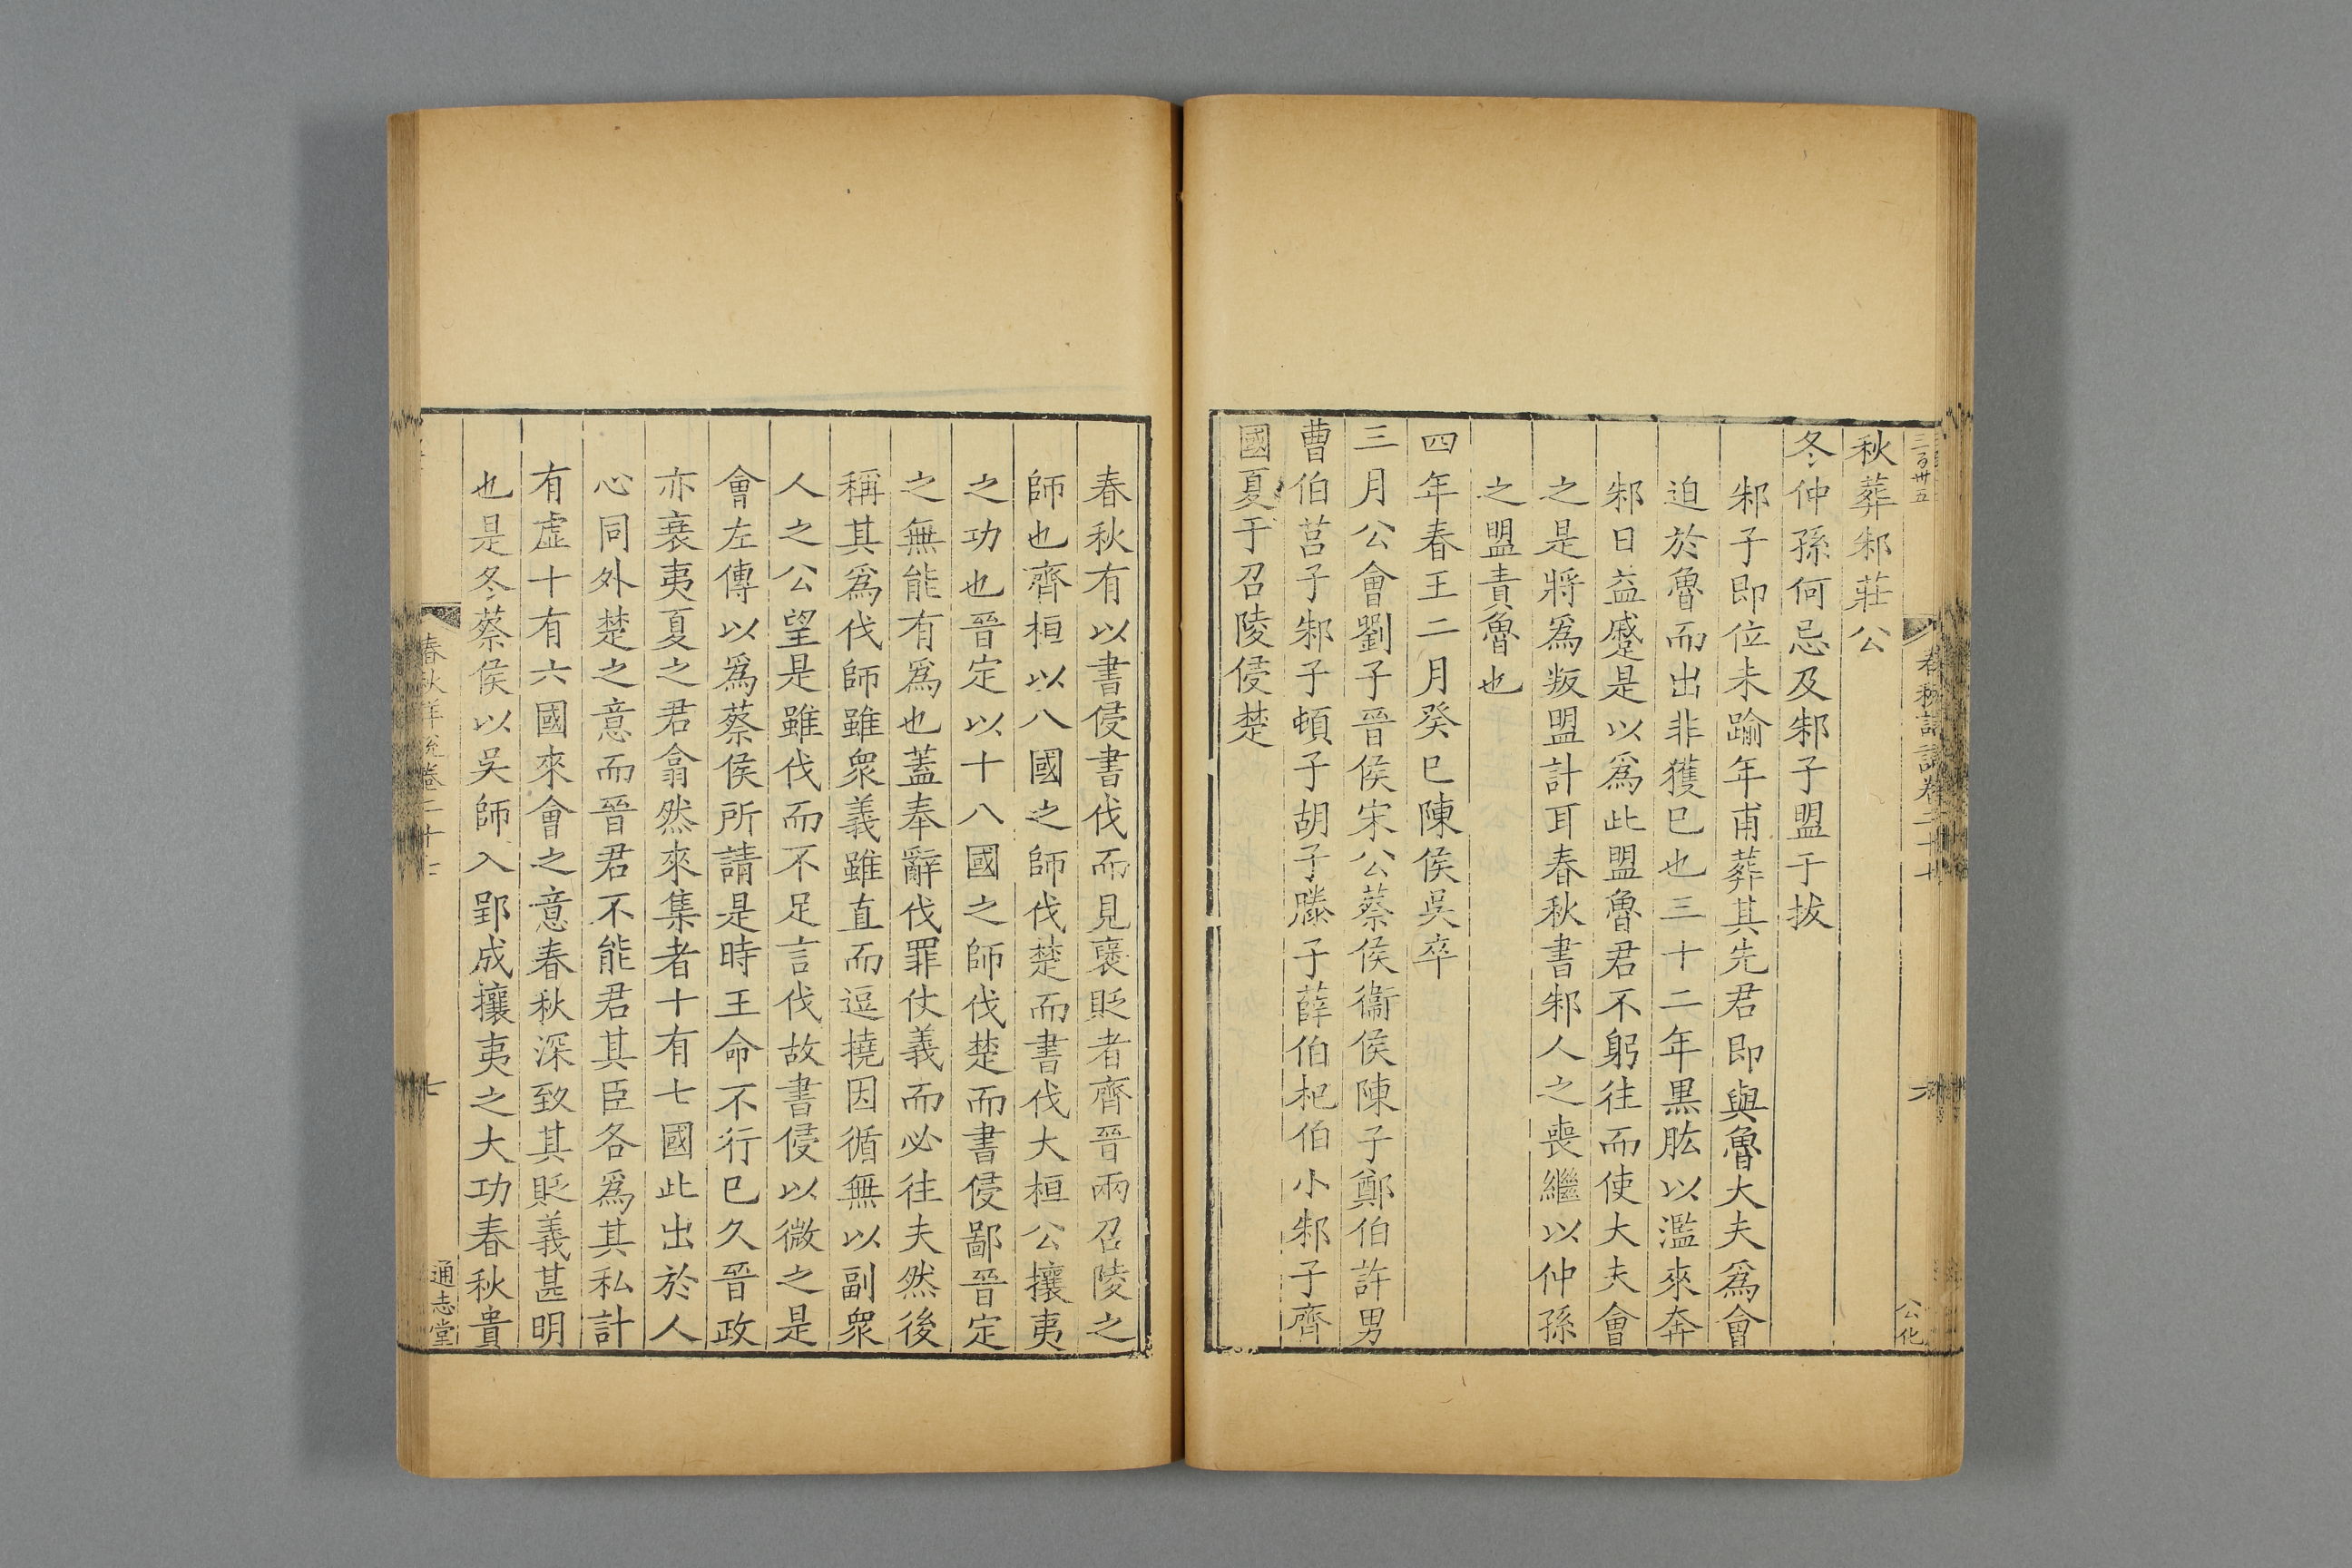 三百卅五
春秋詳說卷二十七
六
公化
秋葬邾莊公
冬仲孫何忌及邾子盟于拔
邾子即位未踰年甫葬其先君即與魯大夫爲會
迫於魯而出非獲已也三十二年黑肱以濫來奔
邾日益蹙是以爲此盟魯君不躬往而使大夫會
之是將爲叛盟計耳春秋書邾人之喪繼以仲孫
之盟責魯也
四年春王二月癸巳陳侯吳卒
三月公會劉子晉侯宋公蔡侯衞侯陳子鄭伯許男
曹伯莒子邾子頓子胡子滕子薛伯杞伯小邾子齊
國夏于召陵侵楚
春秋有以書侵書伐而見襃貶者齊晉兩召陵之
師也齊桓以八國之師伐楚而書伐大桓公攘夷
之功也晉定以十八國之師伐楚而書侵鄙晉定
之無能有爲也蓋奉辭伐罪仗義而必往夫然後
稱其爲伐師雖衆義雖直而逗撓因循無以副衆
人之公望是雖伐而不足言伐故書侵以微之是
會左傳以爲蔡侯所請是時王命不行已久晉政
亦衰夷夏之君翕然來集者十有七國此出於人
心同外楚之意而晉君不能君其臣各爲其私計
有虛十有六國來會之意春秋深致其貶義甚明
也是冬蔡侯以吳師入郢成攘夷之大功春秋貴
春秋詳說卷二十七
七
通志堂